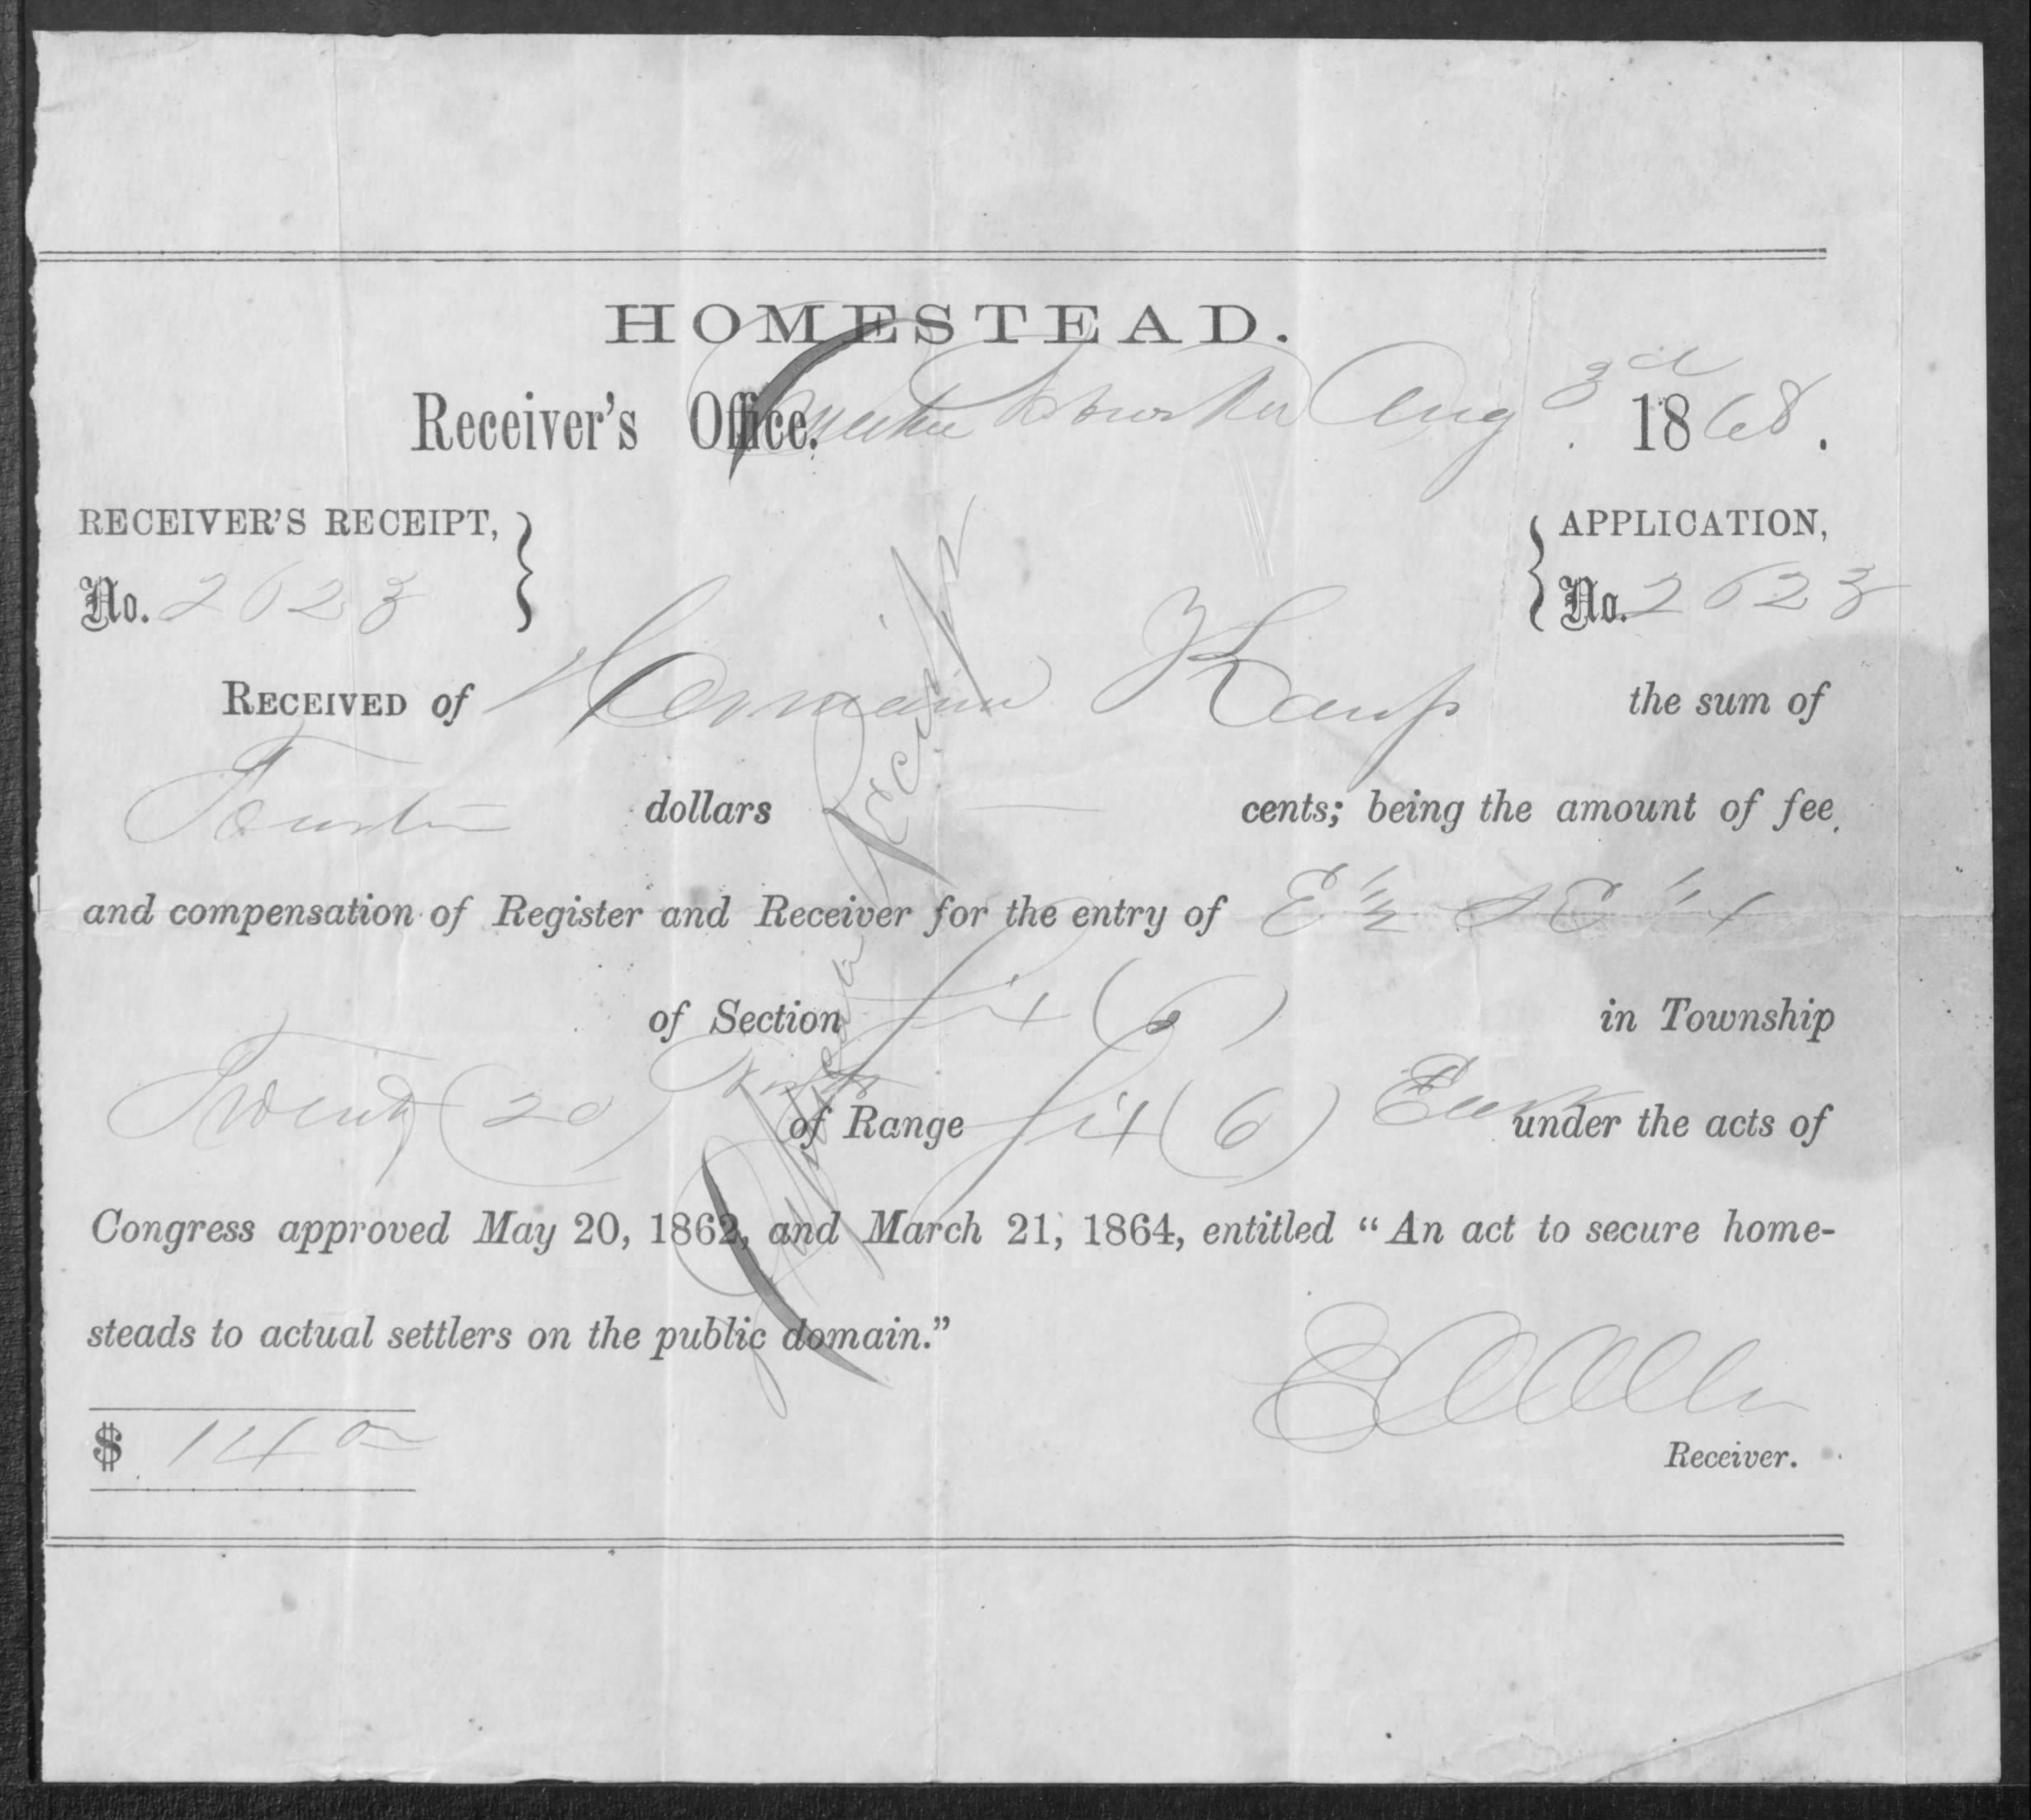 HOMESTEAD.
Receiver's Office, Omaha Nebraska Aug 3d 1868.
RECEIVER'S RECEIPT, APPLICATION,
No. 2623 No. 2623
RECEIVED of Hermann Kamp the sum of
Fourteen dollars — cents; being the amount of fee
and compensation of Register and Receiver for the entry of E 1/2 S E 1/4
of Section Six (6) in Township
Twenty (20) North of Range Six (6) East under the acts of
Congress approved May 20, 1862, and March 21, 1864, entitled “An act to secure home-
steads to actual settlers on the public domain.”
$ 14 00
Receiver.
Duplicate Receipt